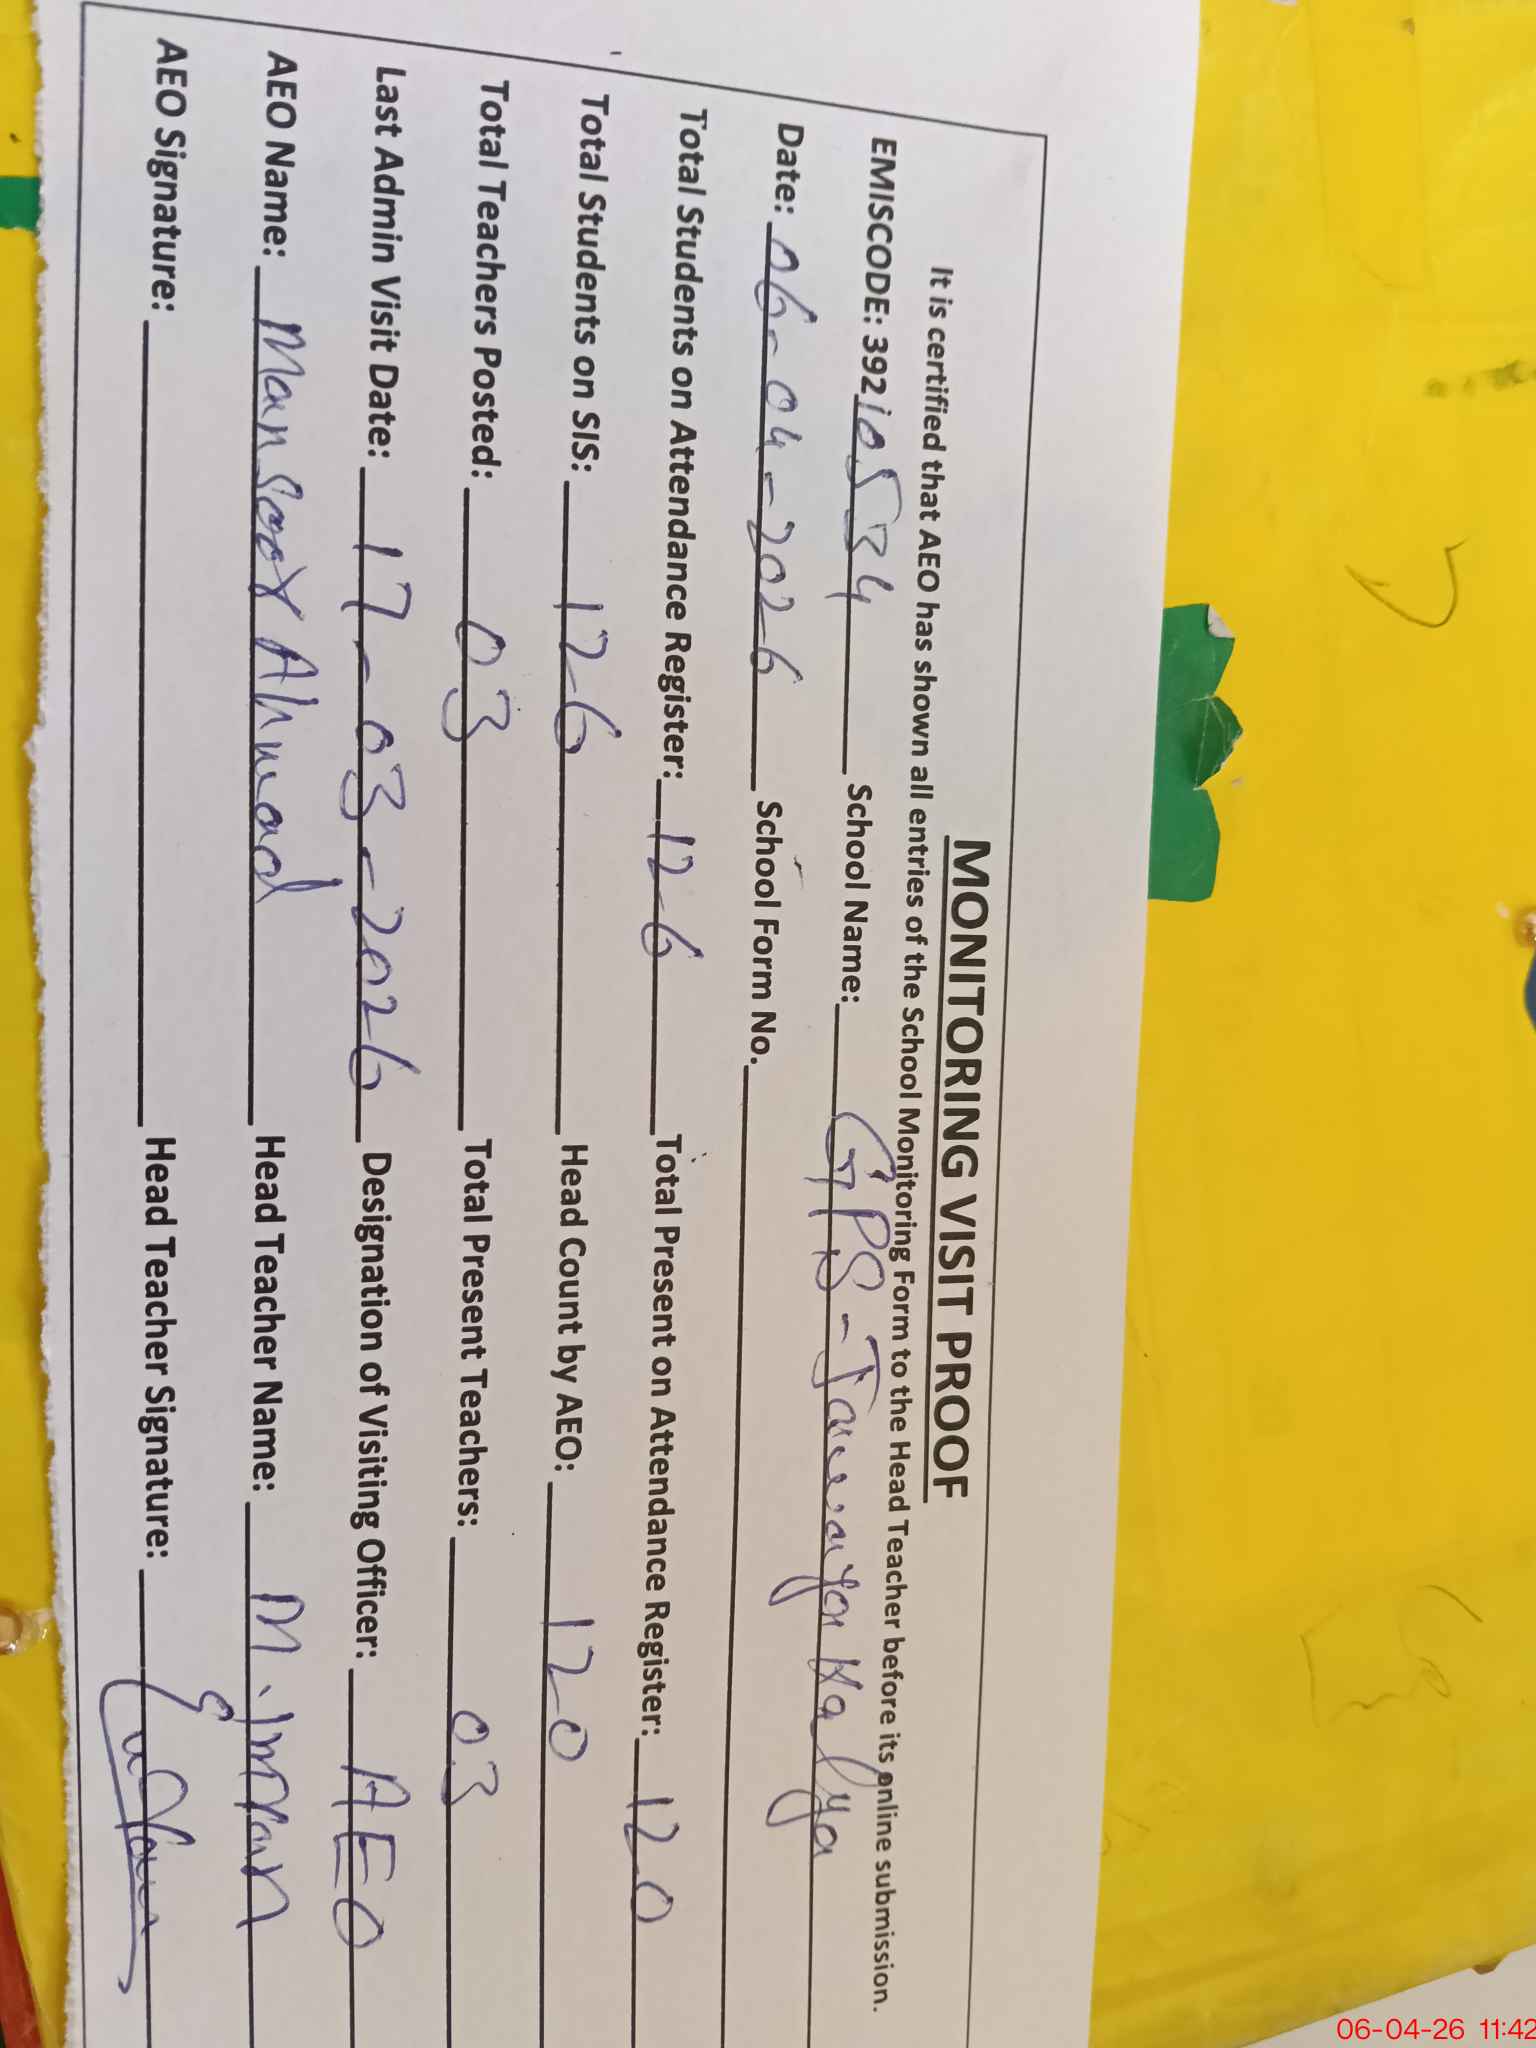 MONITORING VISIT PROOF
It is certified that AEO has shown all entries of the School Monitoring Form to the Head Teacher before its online submission.
EMISCODE: 39210534 School Name: GPS-
Date: 06-04-2026 School Form No.
Total Students on Attendance Register: 126 Total Present on Attendance Register: 120
Total Students on SIS: 126 Head Count by AEO: 120
Total Teachers Posted: 03 Total Present Teachers: 03
Last Admin Visit Date: 17-03-2026 Designation of Visiting Officer: AEO
AEO Name: Mansoor Ahmad Head Teacher Name: M. Imran
AEO Signature: Head Teacher Signature:
06-04-26 11:42